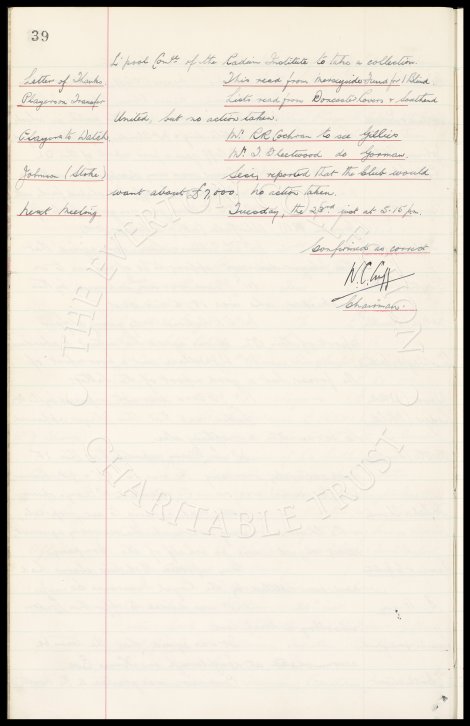 39
L'pool Con^tte of the Radium Institute to take a collection.
Letter of Thanks This read from Merseyside Fund for Blind
Players on Transfer Lists read from Doncaster Rovers & Southend
United, but no action taken.
Players to Watch Mr. R.R. Cochran to see Gillies
Mr. T. Fleetwood do Gorman.
Johnson (Stoke) Secy. reported that the Club would
want about £7,000. No action taken.
Next Meeting Tuesday, the 23rd inst at 5.15 pm.
Confirmed as correct
W.C. Cuff
Chairman.
THE EVERTON COLLECTION
CHARITABLE TRUST